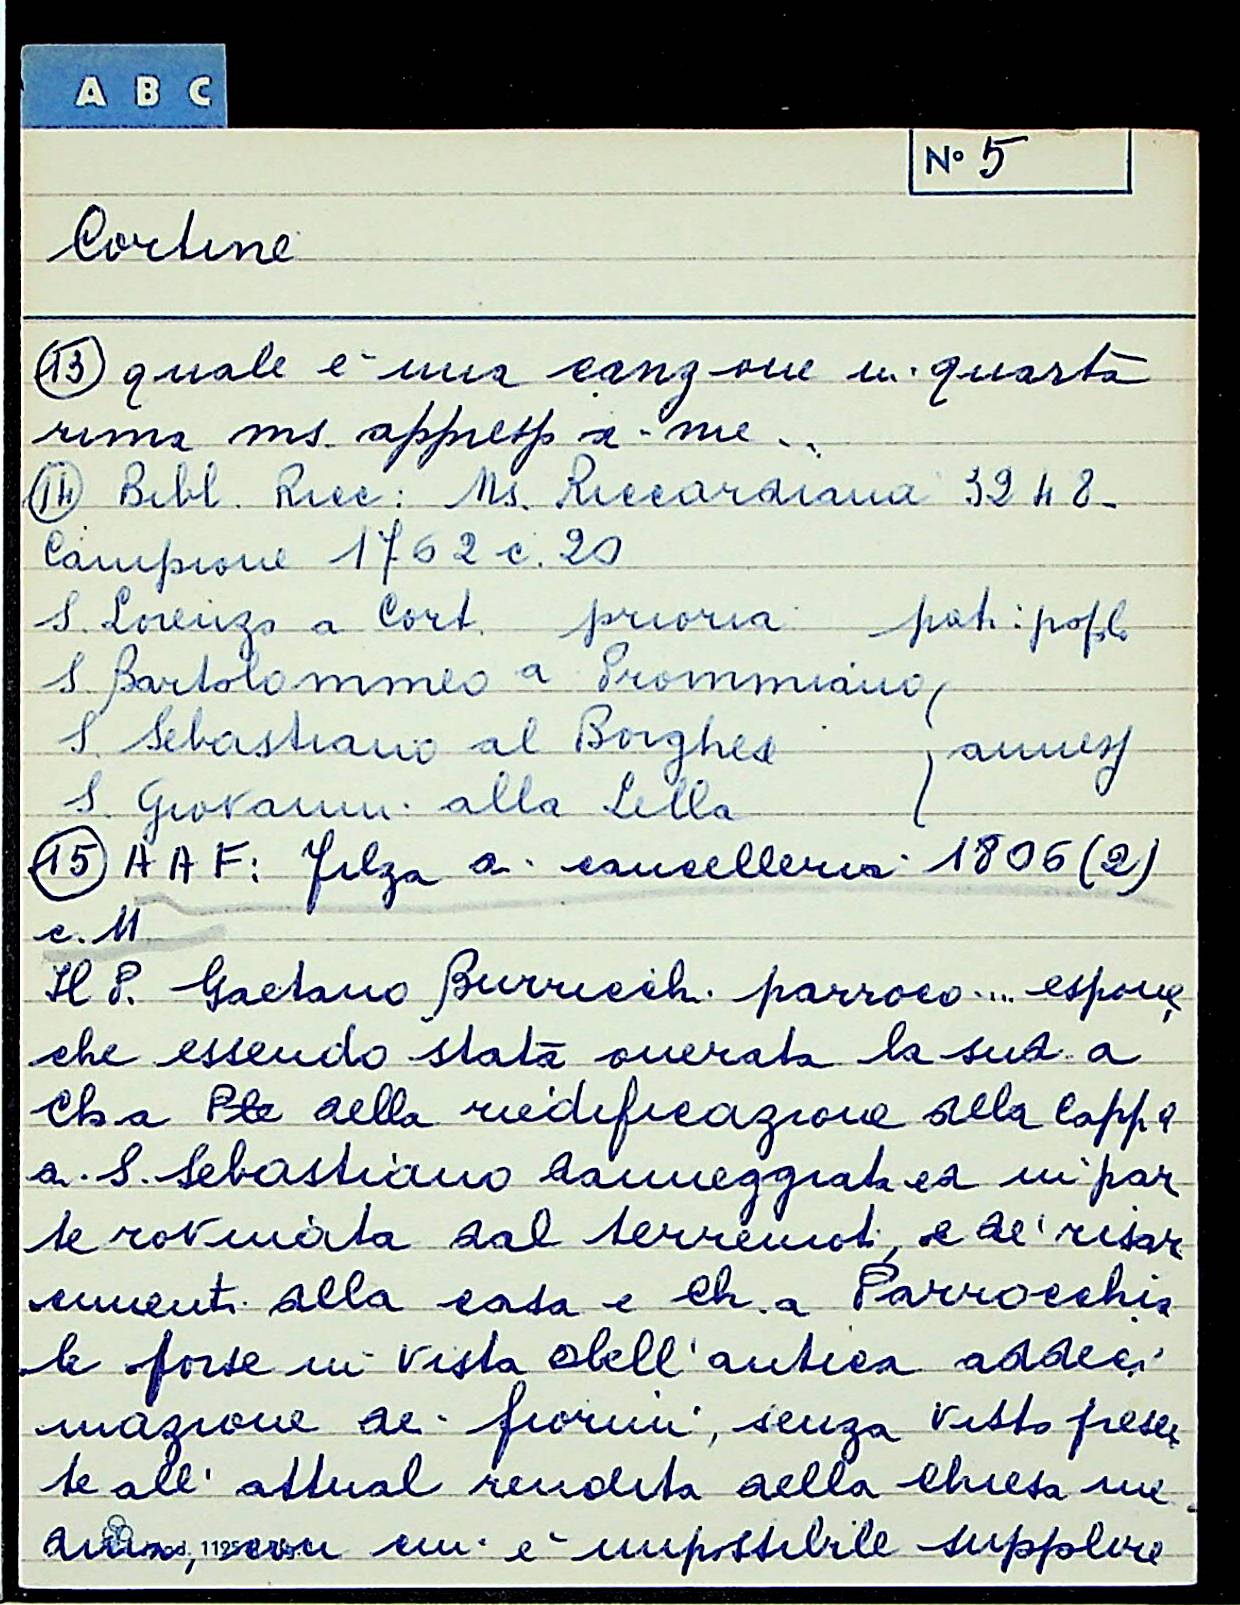 A B C
N° 5
Cortine
(13) quale è una canzone in quarta
rima ms. appresso a me..
(14) Bibl. Ricc: Ms. Riccardiana 3248-
Campione 1762 c. 20
S. Lorenzo a Cort. prioria pat: popolo
S Bartolommeo a Prommiano
S. Sebastiano al Borghese } annessi
S. Giovanni alla Lella
(15) AAF: Filza di cancelleria 1806 (2)
c. 11
Il P. Gaetano Burricchi parroco ... espone
che essendo stata onerata la sud.a
Ch.a della riedificazione della Capp.a
di S. Sebastiano danneggiata ed in par
te rovinata dal terremoti, e de' risar
cimenti alla casa e Ch.a Parrocchia
le forse in vista dell' antica addeci
mazione dei fiorini, senza visto presen
te all' attual rendita della Chiesa me
con cui è impossibile supplire